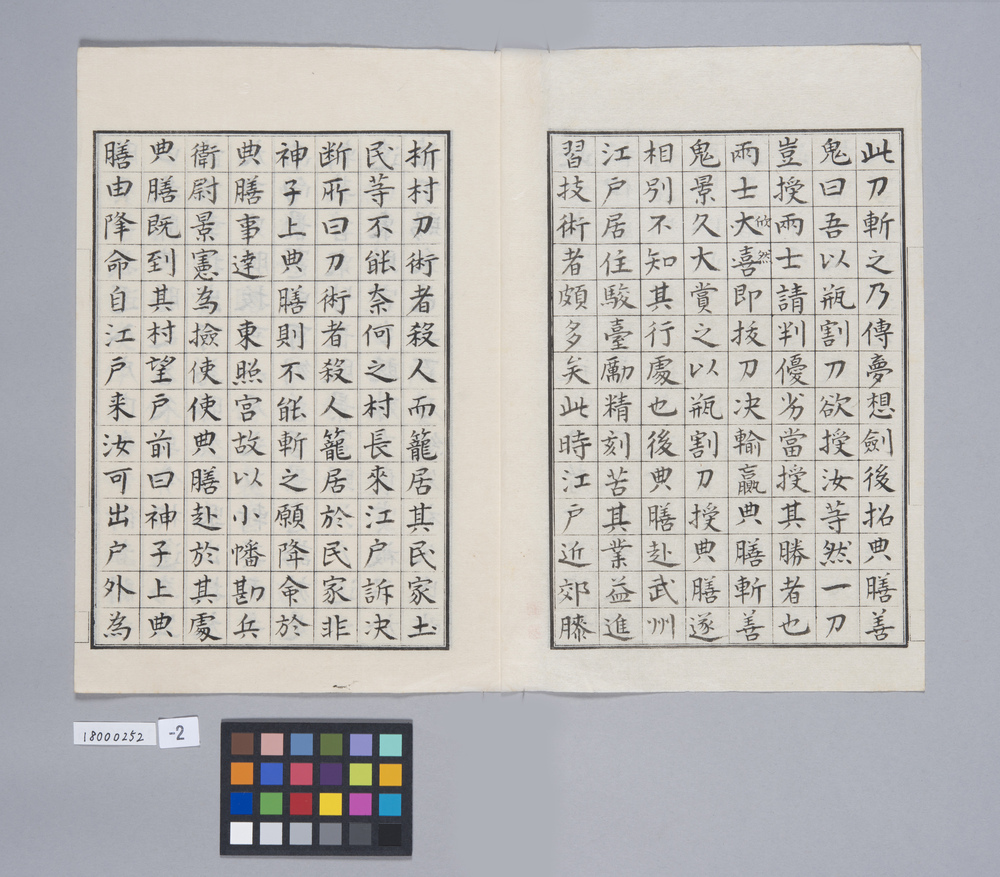 此刀斬之乃傳夢想劍後招典膳善
鬼曰吾以瓶割刀欲授汝等然一刀
豈授兩士請判優劣當授其勝者也
兩士大喜即拔刀决輸贏典膳斬善
欣然
鬼景久大賞之以瓶割刀授典膳遂
相別不知其行處也後典膳赴武州
江戶居住駿臺勵精刻苦其業益進
習技術者頗多矣此時江戶近郊膝
析村刀術者殺人而籠居其民家土
民等不能奈何之村長來江戶訴决
断所曰刀術者殺人籠居於民家非
神子上典膳則不能斬之願降命於
典膳事達 東照宮故以小幡勘兵
衛尉景憲為撿使使典膳赴於其處
典膳既到其村望戶前曰神子上典
膳由降命自江戶来汝可出戶外為
18000252
-2